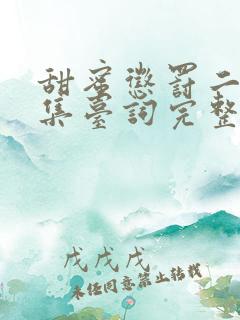 甜蜜懲罰二
集臺詞完整
戊戊戌
未经同意禁止转载